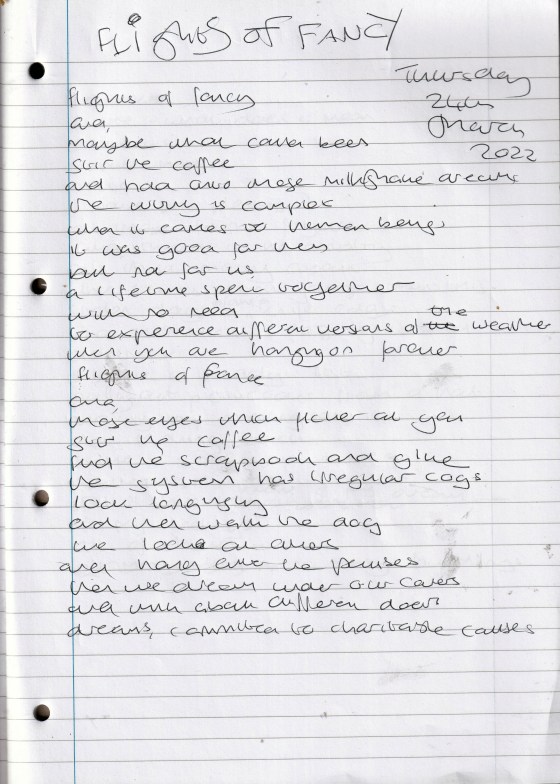 FLIGHTS OF FANCY
Thursday
24th
March
2022
flights of fancy
and,
maybe what could been
stir the coffee
and hold onto those milkshake dreams
the wiring is complex
when it comes to human beings
it was good for them
but not for us
a lifetime spent together
with no need
to experience different versions of the the weather
when you are hanging on forever
flights of fance
and,
those eyes which flicker at you
stir the coffee
find the scrapbook and glue
the system has irregular cogs
look languishly
and then walk the dog
we look at others
and hang onto the pauses
then we dream under our covers
and think about different doers
dreams, committed to charitable causes